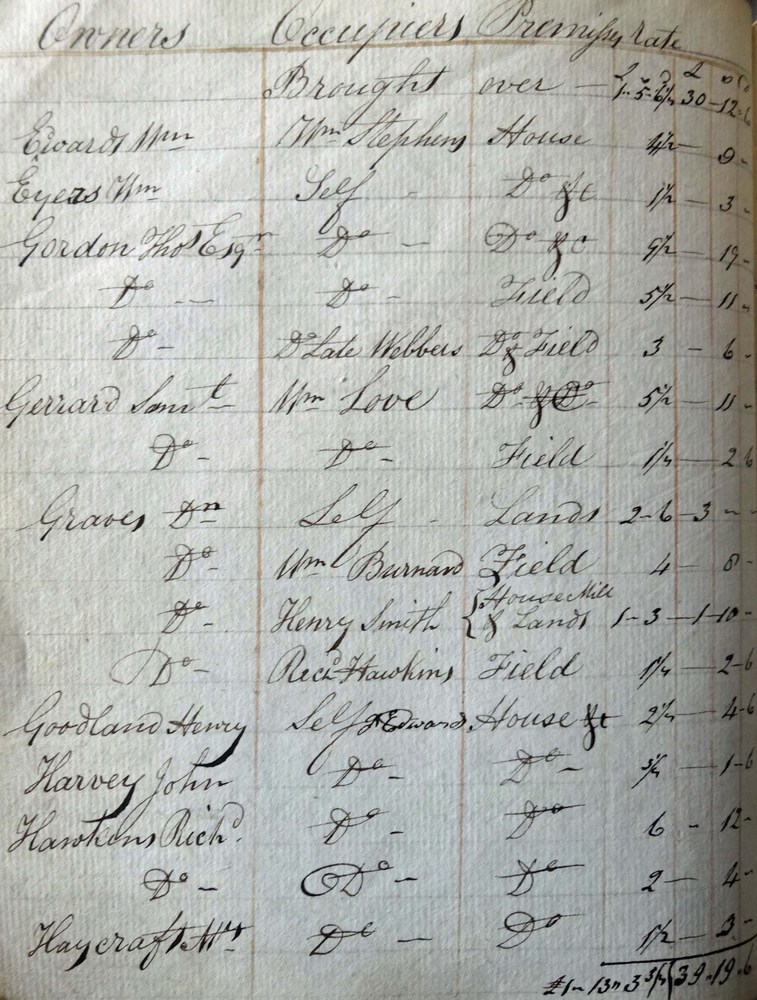 Owners Occupiers Premises rate
Brought over — 1-5-6½ 30-12-6
Edwards Wm Wm Stephens House 4½ — 9 -
Eyers Wm Self - Do &c 1½ — 3 -
Gordon Thos Esqr Do — Do &c 9½ — 19 -
Do -- Do - Field 5½ — 11 -
Do - Do Late Webbers Do & Field 3 - 6 -
Gerrard Saml Wm Love Do & Do 5½ — 11 -
Do - Do - Field 1¼ — 2 6
Graves Dn Self - Lands 2-6-3 - -
Do - Wm Burnard Field 4 - 8 -
Do - Henry Smith {House Mill & Lands 1-3-1-10-
Do - Richd Hawkins Field 1¼ — 2-6
Goodland Henry Self & Edward House &c 2¼ — 4-6
Harvey John Do - Do - ¾ — 1-6
Hawkens Richd. Do - Do 6 - 12-
Do - Do - Do 2 — 4-
Haycraft Mrs Do — Do 1½ — 3-
£1-13-3¾ 39-19-6